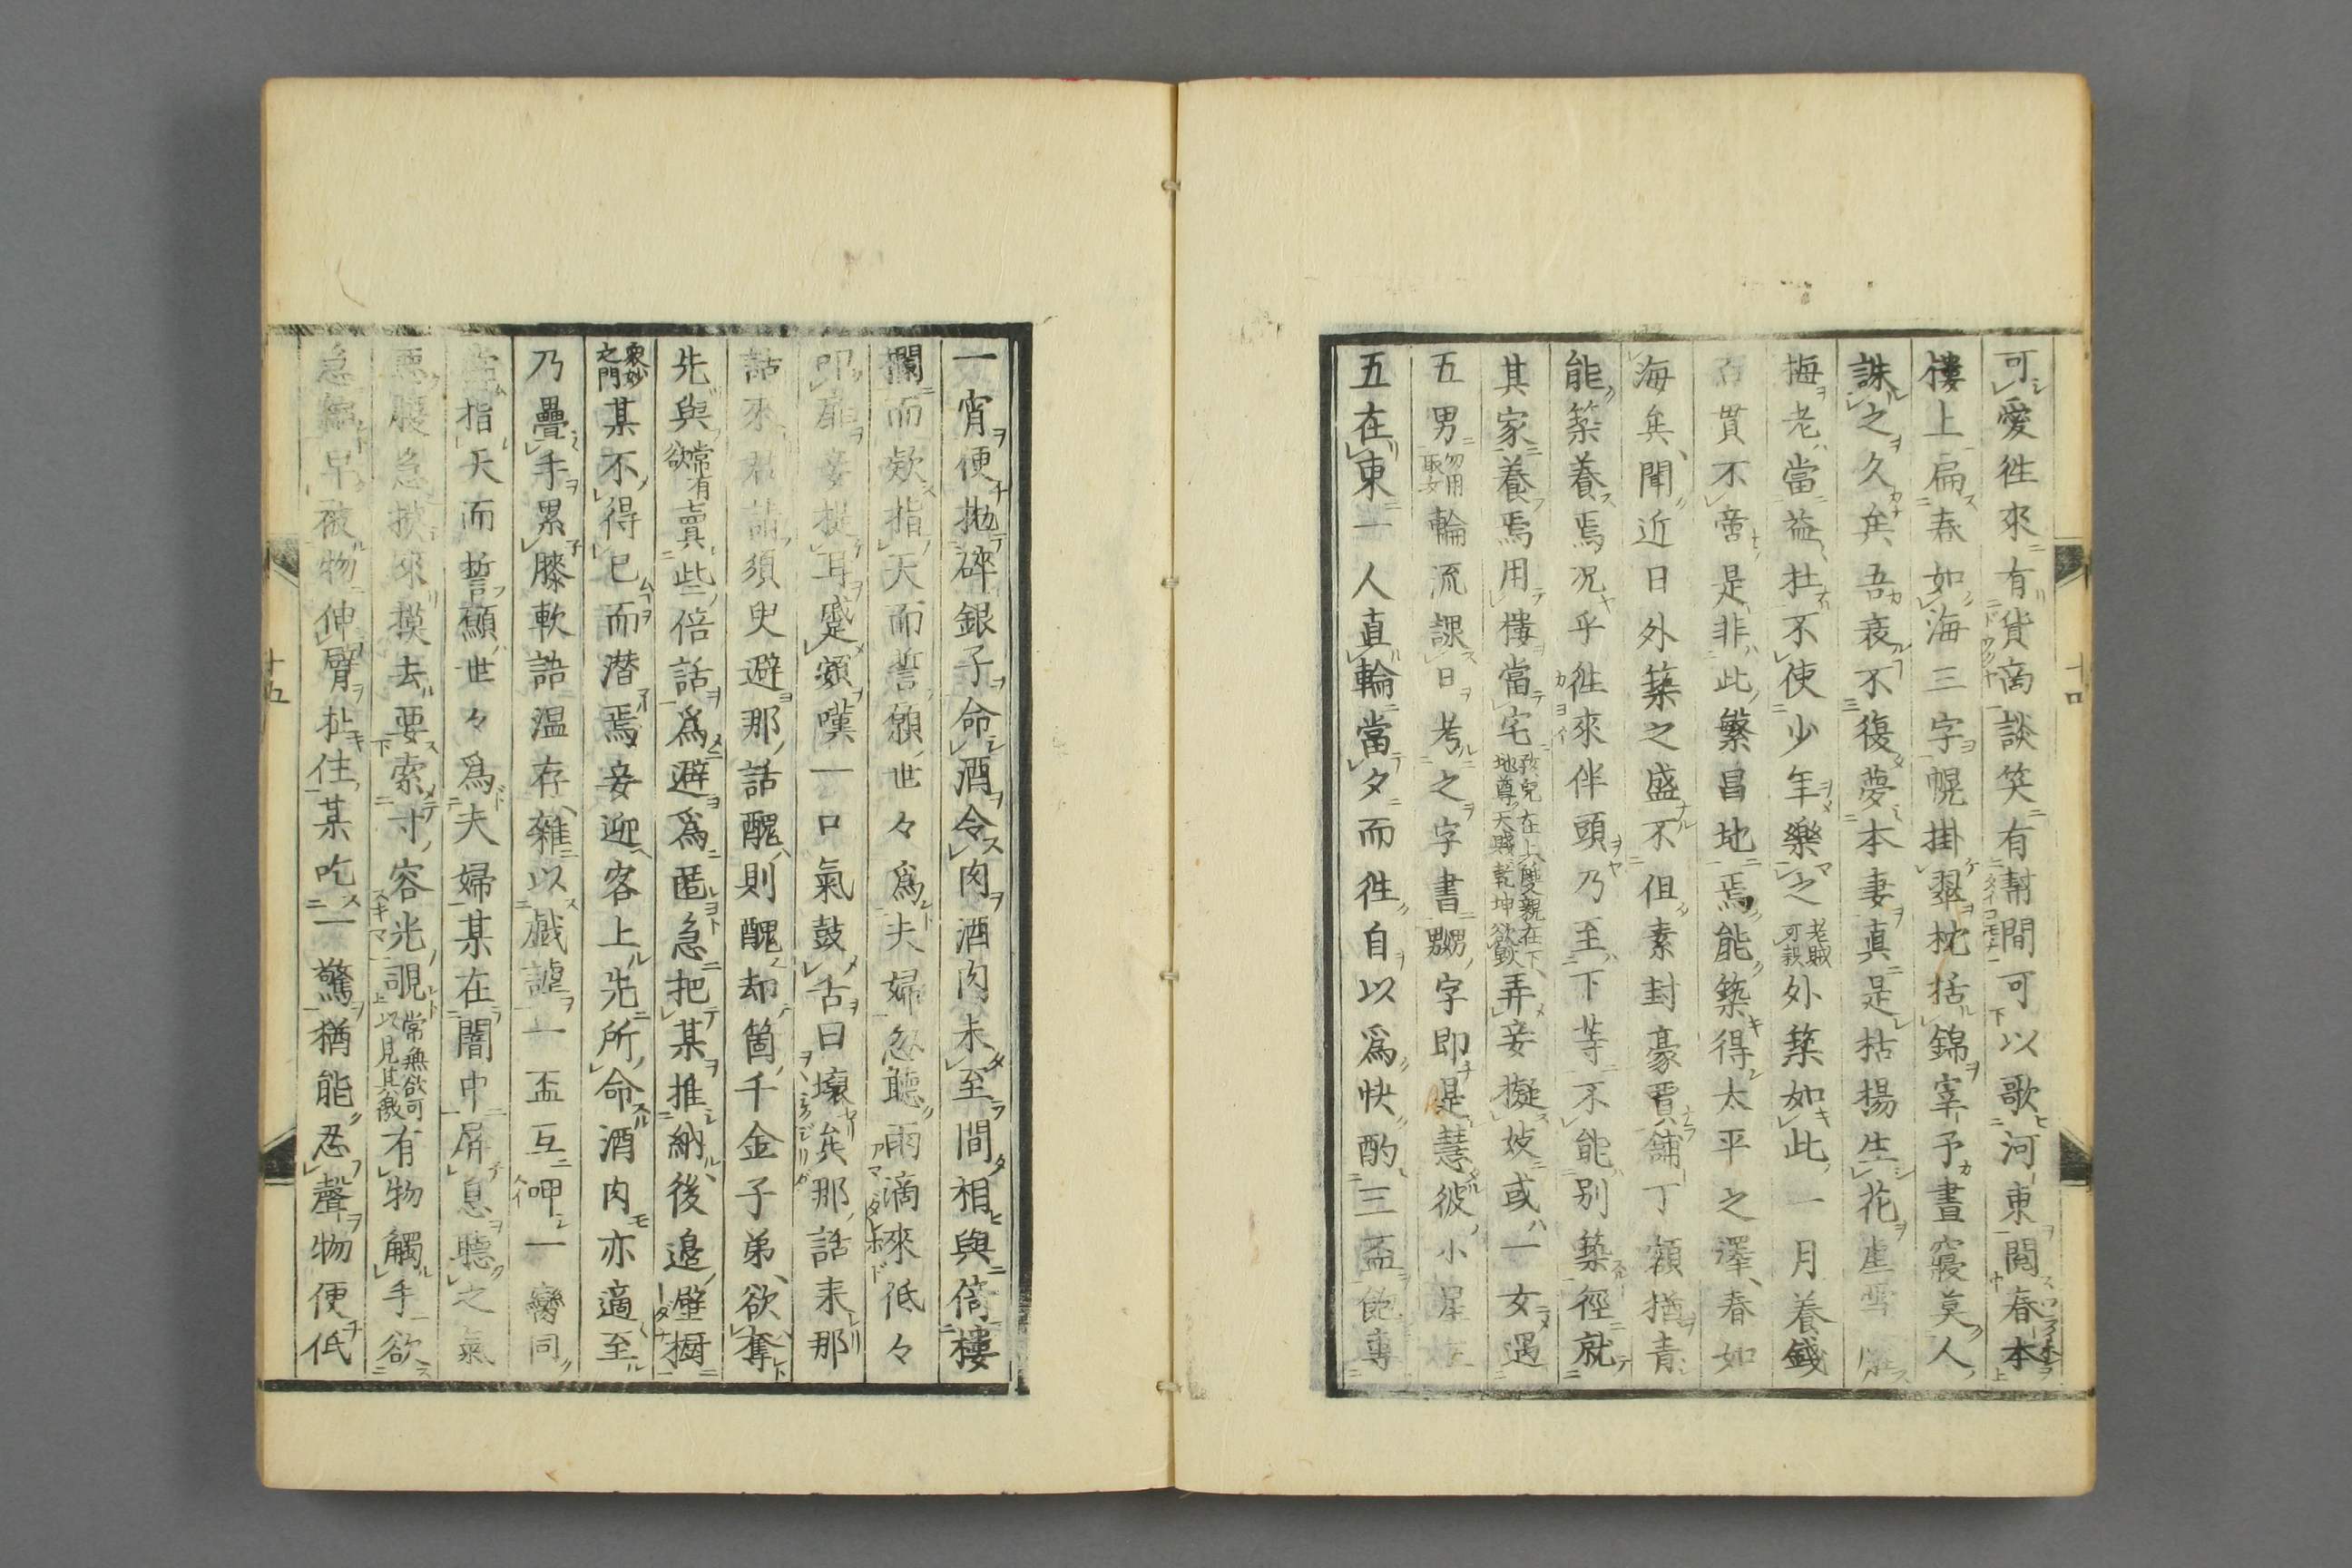 可愛徃來有貨商談笑有幇間可以歌河東閲春本
樓上扁春如海三字幌掛翠枕括錦宰予晝寢莫人
誅之久矣吾衰不復夢本妻眞是枯楊生花
梅老當益壮不使少年樂之老賊可殺外築如此一月養錢
貫不啻是非此繁昌地焉能築得太平之澤春如
海矣聞近日外築之盛不但素封豪賈舗丁額猶青
能築養焉况乎徃來伴頭乃至下等不能别築徑就
其家養焉用樓當宅孩兒在上雙親在下地尊天賤乾坤欲毀弄妾擬妓或一女遇
五男勿用取女輪流課日考之字書嬲字即是慧彼小
五在東一人直輪當夕而徃自以爲快酌三盃飽專
十四
一宵便抛碎銀子命酒令肉酒肉未至間相與倚樓
欄而欸指天而誓願世々爲夫婦忽聽雨滴來低々
即扉妾捉耳蹙額嘆一口氣鼓舌曰壞矣那話来那
話來君請須臾避那話醜則醜却箇千金子弟欲奪
先與常有欲賣些倍話爲避爲匿急把某推納後邉壁橱
衆妙之門某不得已而潜焉妾迎客上先所命酒肉亦適至
乃疊手累膝軟語温存雜以戯謔一盃互呷一臠同
指天而誓願世々爲夫婦某在闇中屏息聽之氣
悪腹急揿來摸去要索寸容光覗常無欲可以見其徼有物觸手欲
急縮早被物伸臂扯住某吃一驚猶能忍聲物便低
十五